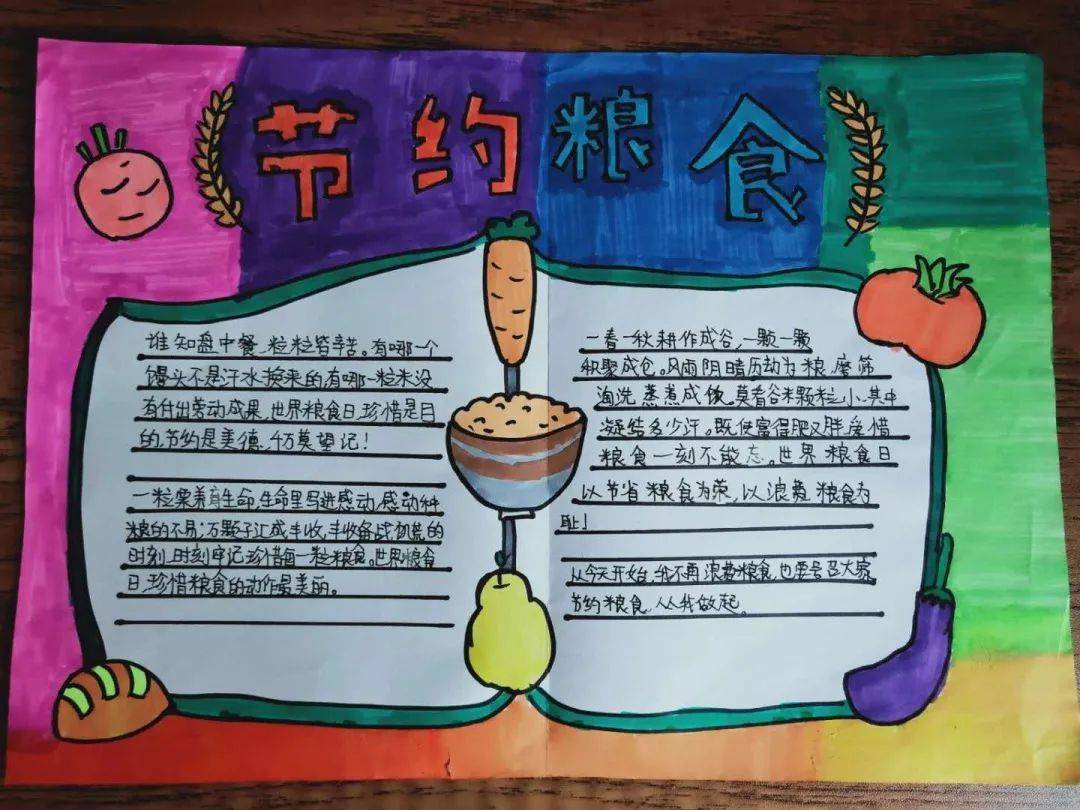 节约粮食
谁知盘中餐,粒粒皆辛苦。有哪一个
馒头不是汗水换来的,有哪一粒米没
有付出劳动成果,世界粮食日,珍惜是目
的,节约是美德,千万莫望记!
一粒粟养育生命,生命里写进感动,感动种
粮的不易;万颗子让成丰收,丰收备战饥荒的
时刻,时刻牢记珍惜每一粒粮食。世界粮食
日,珍惜粮食的动作最美丽。
一春一秋耕作成谷,一颗一颗
积聚成仓。风雨阴晴历劫为粮,磨筛
淘洗蒸煮成饭。莫看谷米颗粒小,其中
凝结多少汗。既使富得肥又胖,爱惜
粮食一刻不能忘。世界粮食日
以节省粮食为荣,以浪费粮食为
耻」
从今天开始,我不再浪费粮食,也要号召大家
节约粮食,从我做起。